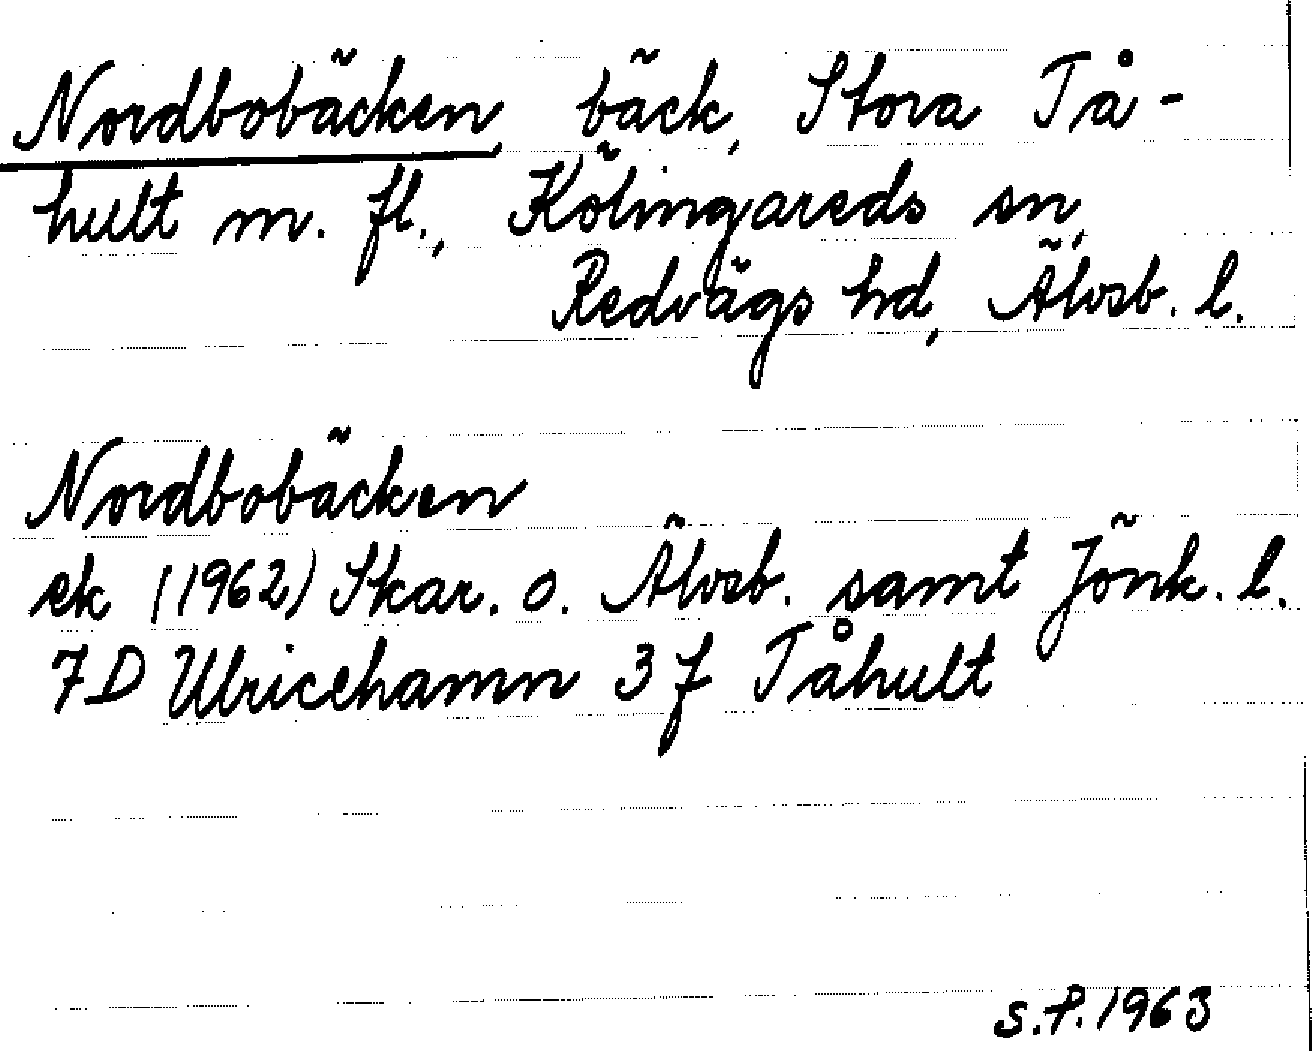 Nordbobäcken, bäck, Stora Tå-
hult m. fl., Kölingareds sn,
Redvägs hd, Älvsb. l.
Nordbobäcken
ek (1962) Skar. o. Älvsb. samt Jönk. l.
7D Ulricehamn 3f Tåhult
S.P. 1963